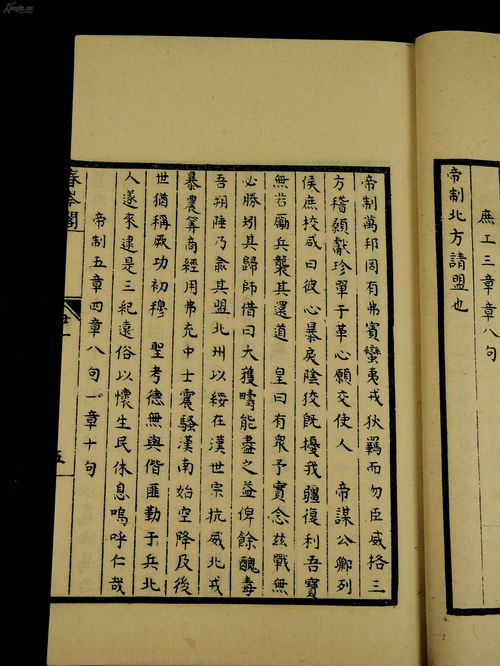 庶工三章章八句
帝制北方請盟也
帝制萬邦罔有弗賓蠻夷戎狄羈而勿臣威格三
方稽顙獻珍單于革心願交使人 帝謀公卿列
侯庶校咸曰彼心暴戾陰狡既擾我疆復利吾寶
無若勵兵襲其還道 皇曰有衆予實念玆戰無
必勝矧其歸師借曰大獲疇能盡之益俾餘醜毒
吾朔陲乃肅其盟北州以綏在漢世宗抗威北戎
暴農筭商經用弗充中士震騷漢南始空降及後
世猶稱厥功初穆 聖考德無與偕匪勤于兵北
人遂來逮是三紀遠俗以懷生民休息嗚呼仁哉
帝制五章四章八句一章十句
春岑閣
五
Kongfz.cn